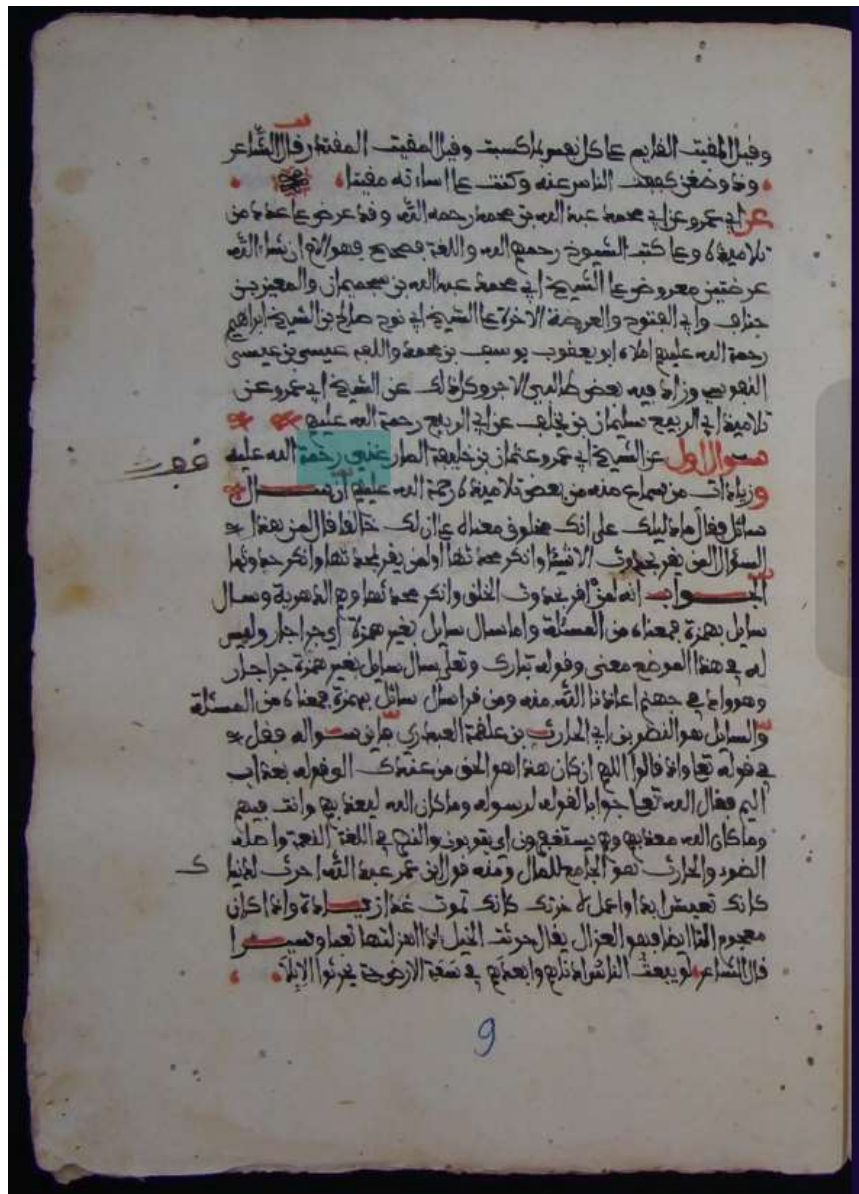 وقيل المقيت القايم على كل نفس بما كسبت وقيل المقيت المقتدر قال الشاعر
وذي ضغن كففت الناس عنه وكنت على اساءته مقيتا
عن ابي عمرو عن ابي محمد عبد الله بن محمد رحمه الله وقد عرض على عدة من
تلاميذه وعلى كتب الشيوخ رحمهم الله واللغة فصحيح فهو الام ان شاء الله
عرضتين معروض على الشيخ ابي محمد عبد الله بن سجميمان والمعيز بن
جناف وابي الفتوح والعرضة الاخرة على الشيخ ابي نوح صالح بن الشيخ ابراهيم
رحمة الله عليهم املاه ابو يعقوب يوسف بن محمد واللهم عيسى بن عيسى
النفوسي وزاد فيه بعض طالبي الاجر وكذلك عن الشيخ ابي عمرو عن
تلاميذ ابي الربيع سليمان بن يخلف عن ابي الربيع رحمة الله عليهم
سوال اول عن الشيخ ابي عمرو عثمان بن خليفة المارغني رحمة الله عليه
وزيادات من سماع منه من بعض تلاميذه رحمة الله عليهم ان سال
سائل فقال ما دليلك على انك مخلوق معناه على ان لك خالقا فالمن هذا
السؤال لمن يقر بحدوث الاشياء وانكر محدثها او لمن يقر بمحدثها وانكر حدوثها
الجواب انه لمن اقر بحدوث الخلق وانكر محدثها وهم الدهرية وسال
سايل بهمزة فمعناه من المسئلة واما سال سايل بغير همزة اي جرا جار وليس
له في هذا الموضع معنى وقوله تبارك وتعلى سال سايل بغير همزة جرا جار
وهو واد في جهنم اعاذنا الله منه ومن قرا سال سائل بهمزة فمعناه من المسئلة
والسايل هو النظر بن ابي الحارث بن علقمة العبدري هاين سواله فقل
في قوله تعلى واذ قالوا اللهم ان كان هذا هو الحق من عندك الى قوله بعذاب
اليم فقال الله تعلى جوابا لقوله لرسوله وما كان الله ليعذبهم وانت فيهم
وما كان الله معذبهم وهم يستغفرون اي يتوبون والنظر في اللغة النعمة واصله
الضود والحارث هو الجامع للمال ومنه قول ابن عمر عبد الله احرث لدنياك
كانك تعيش ابدا واعمل لاخرتك كانك تموت غدا زيادة واذا كان
معجوم الثا ايضا فهو العزال يقال حرثت الخيل اذا اهزلتها تعبا وسيرا
قال الشاعر لو يبعث الناس اذناهم وابعدهم في سعة الارض حتى يحرثوا الابلا
9